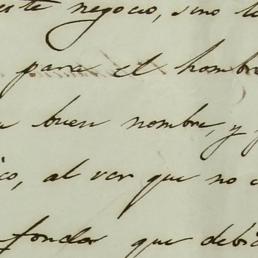 este negocio, sino la
para el hombre
buen nombre, y
ico, al ver que no
fondos que debic